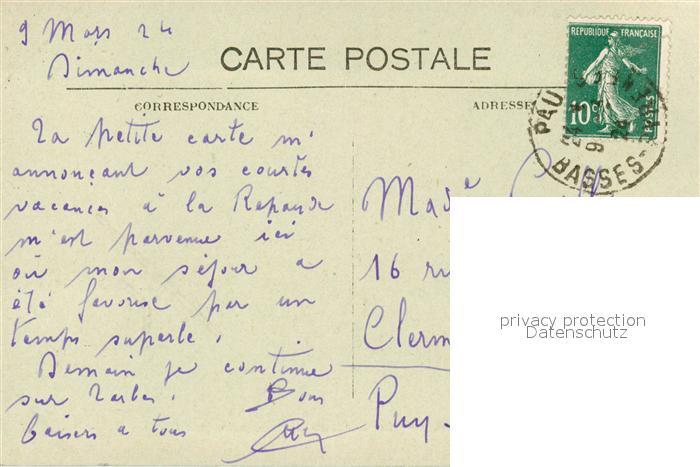 9 Mars 24
Dimanche
CARTE POSTALE
CORRESPONDANCE
ADRESSE
REPUBLIQUE FRANÇAISE
10c
POSTES
PAU
BASSES-
La petite carte m'
annonçant vos courtes
vacances à la
m'est parvenue ici
où mon séjour a
été favorisé par un
temps superbe.
Demain je continue
sur Tarbes. Bons
baisers à tous
Made
16 ru
Clerm
Puy-
privacy protection
Datenschutz